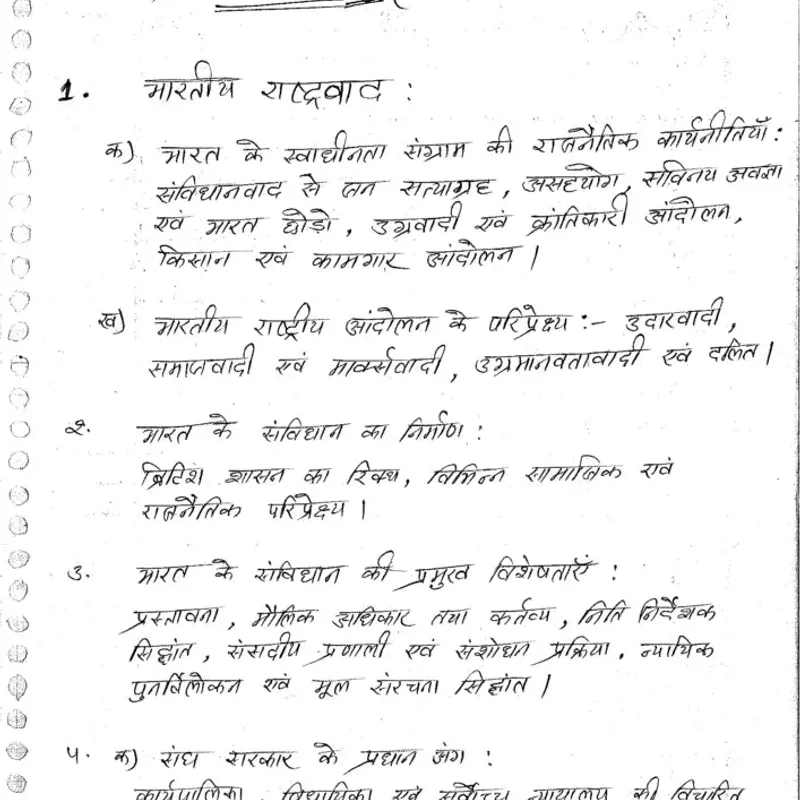 1. भारतीय राष्ट्रवाद :
क) भारत के स्वाधीनता संग्राम की राजनैतिक कार्यनीतियाँ :
संविधानवाद से जन सत्याग्रह, असहयोग, सविनय अवज्ञा
एवं भारत छोड़ो, उग्रवादी एवं क्रांतिकारी आंदोलन,
किसान एवं कामगार आंदोलन।
ख) भारतीय राष्ट्रीय आंदोलन के परिप्रेक्ष्य :- उदारवादी,
समाजवादी एवं मार्क्सवादी, उग्रमानवतावादी एवं दलित।
२. भारत के संविधान का निर्माण :
ब्रिटिश शासन का रिक्थ, विभिन्न सामाजिक एवं
राजनैतिक परिप्रेक्ष्य।
३. भारत के संविधान की प्रमुख विशेषताएँ :
प्रस्तावना, मौलिक अधिकार तथा कर्तव्य, निति निर्देशक
सिद्धांत, संसदीय प्रणाली एवं संशोधन प्रक्रिया. न्यायिक
पुनर्विलोकन एवं मूल संरचना सिद्धांत।
५. क) संघ सरकार के प्रधान अंग :
कार्यपालिका, विधायिका एवं सर्वोच्च न्यायालय की विचारित